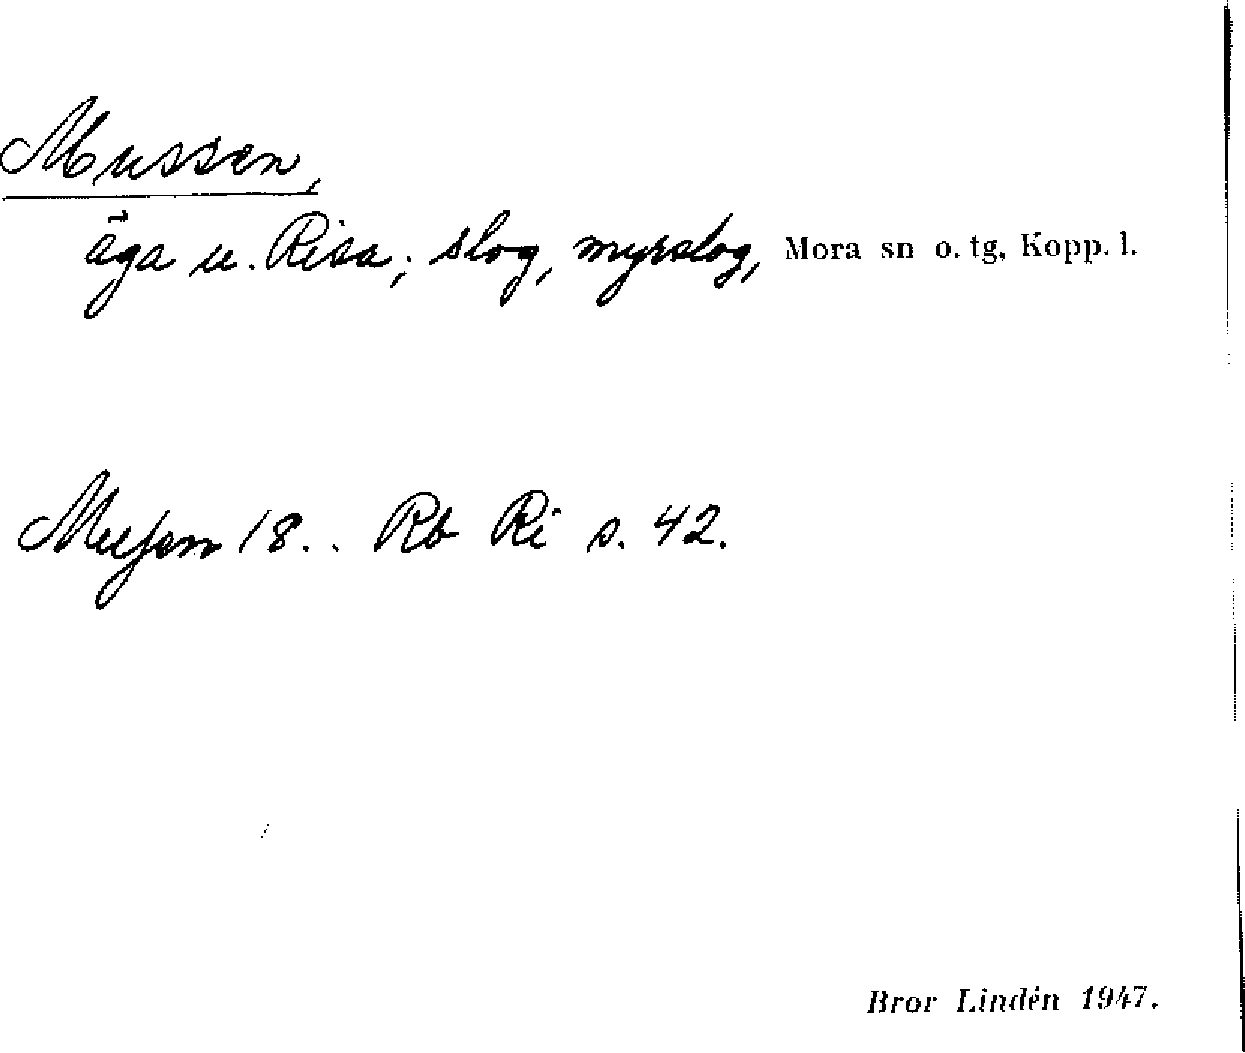 Mussen,
äga u. Risa; slog, myrslog, Mora sn o. tg, Kopp. l.
Musſen 18.. Rb Ri s. 42.
Bror Lindén 1947.